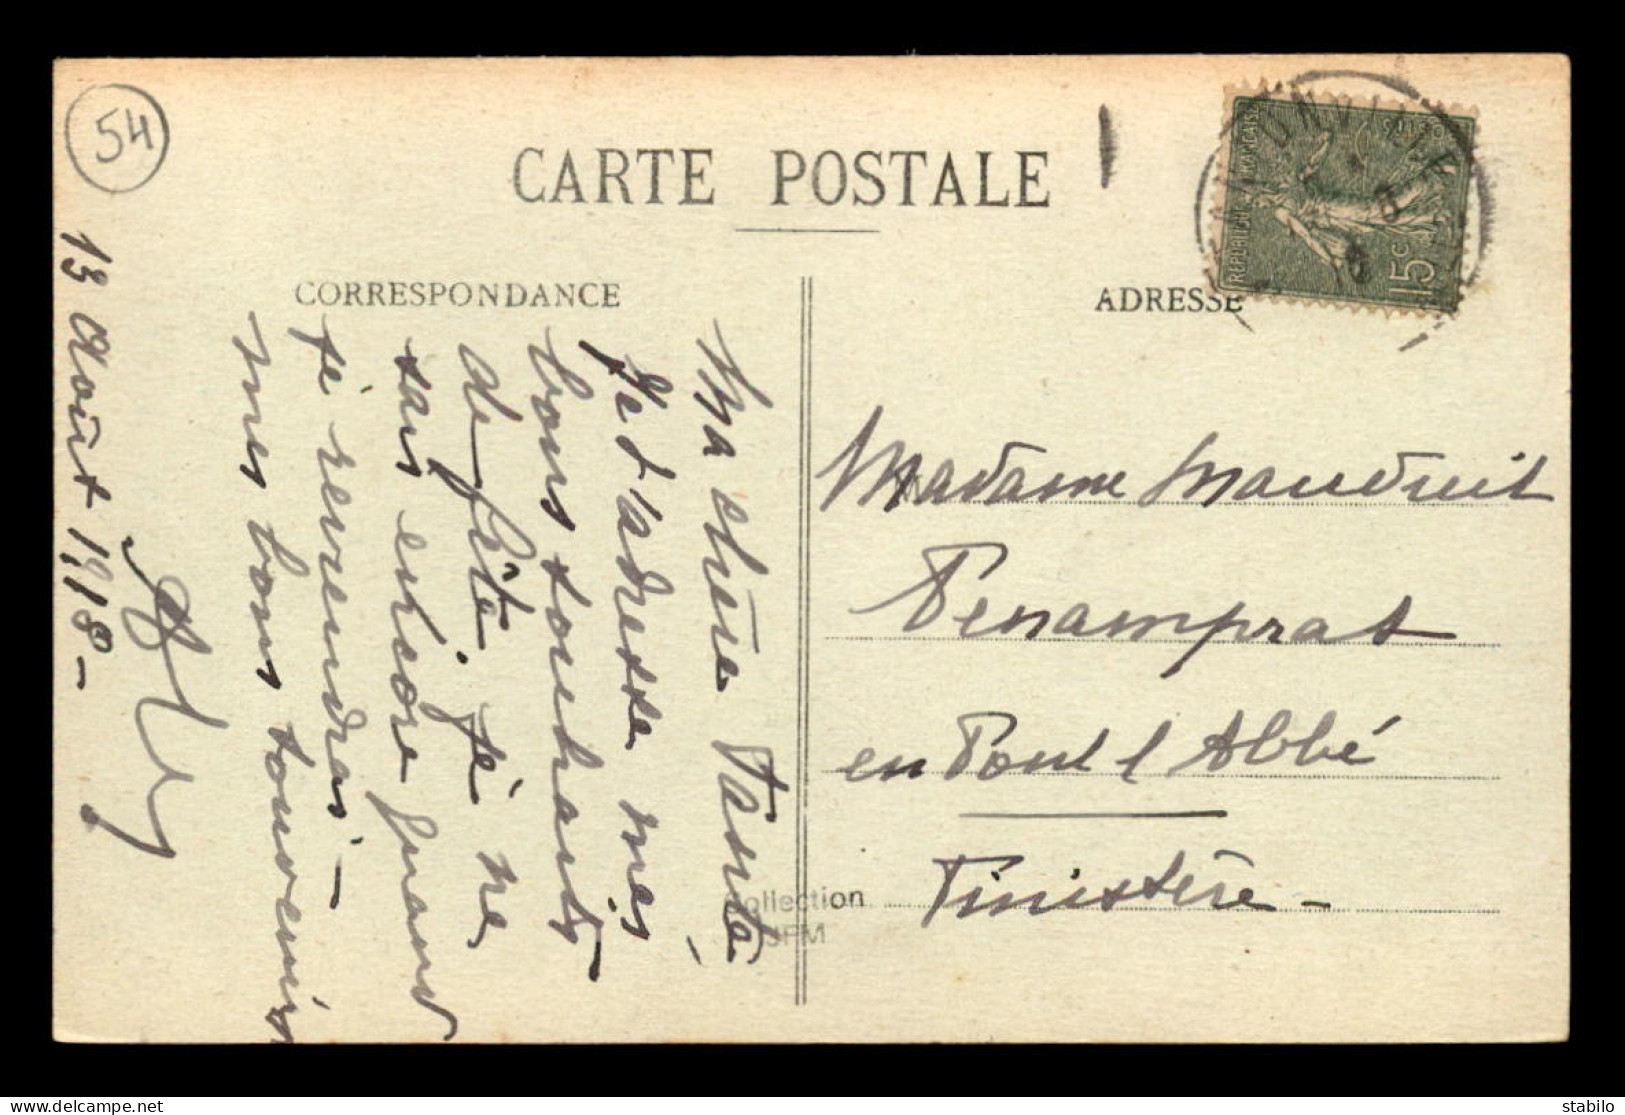 54
CARTE POSTALE
CORRESPONDANCE
ADRESSE
Ma chère Tante
Je t'adresse mes
bons souhaits
de fête. je ne
sais encore quand
je reviendrai -
mes bons souvenirs
13 Août 1918 -
Madame Mauduit
Penamprat
en Pont l'Abbé
Finistère -
RÉPUBLIQUE FRANÇAISE
POSTES
15c
Collection
JFM
stabilo